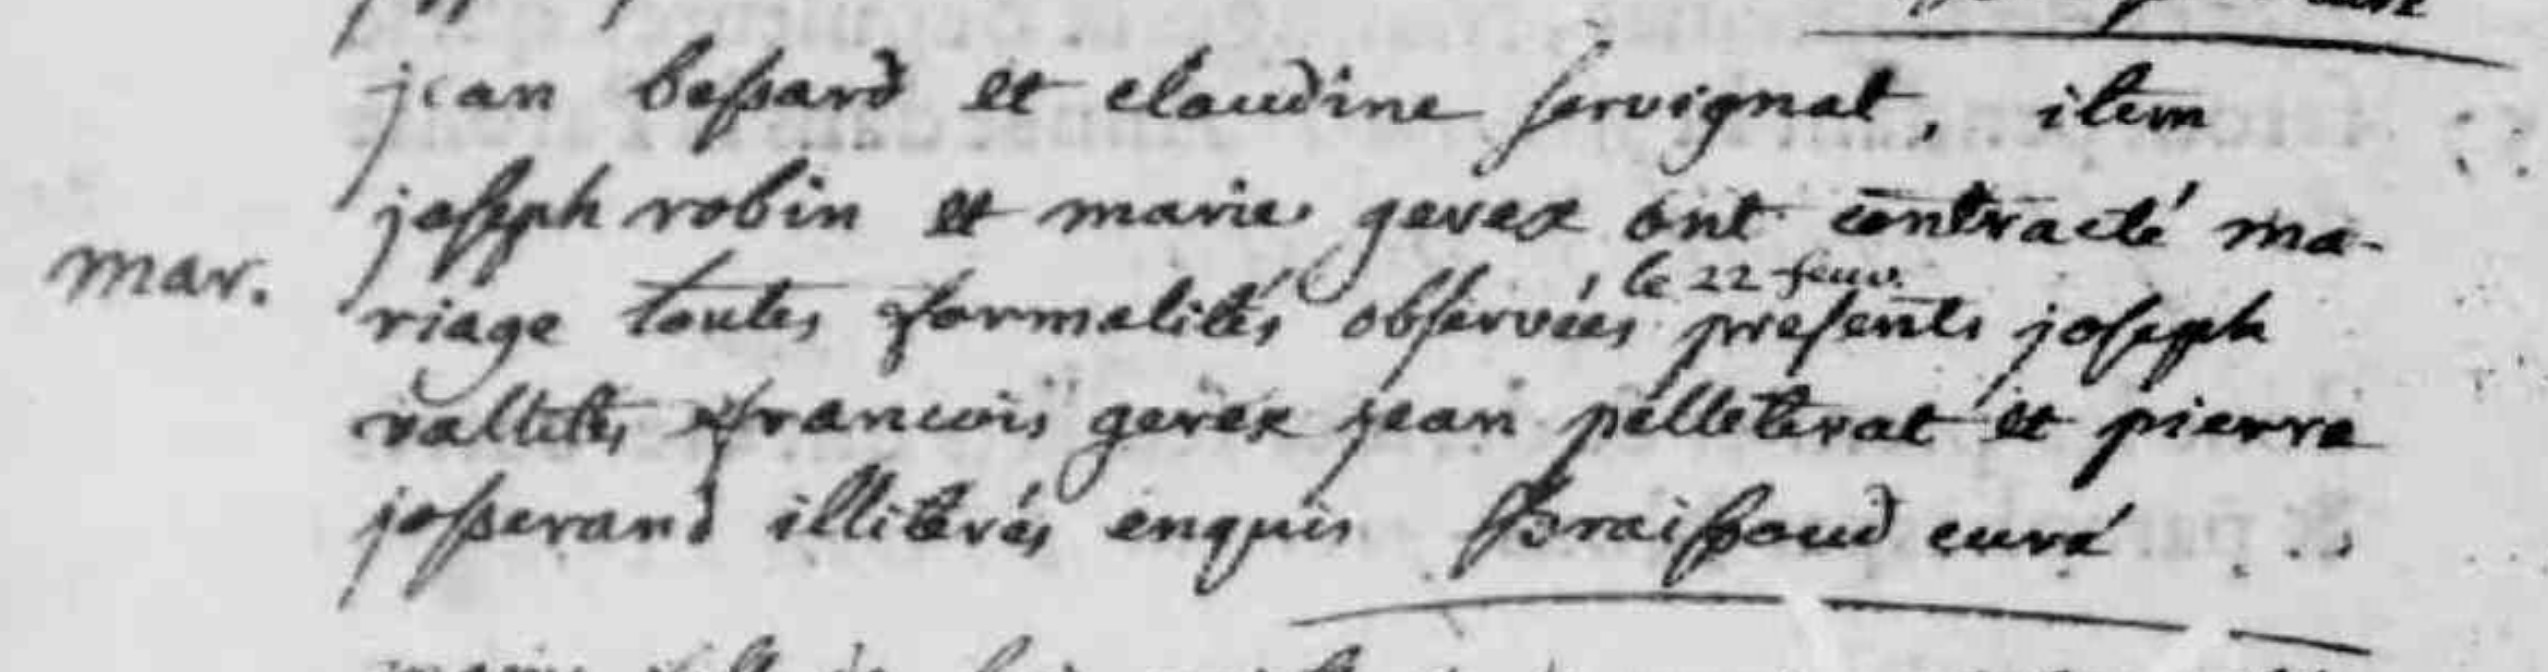 jean bessard et claudine servignat, item
joseph robin et marie gerex ont contracté ma-
mar.
le 22 fevr.
riage toutes formalités observées presents joseph
valtetes francois gerex jean pelleterat et pierre
josserand illiterés enquis Braissoud curé